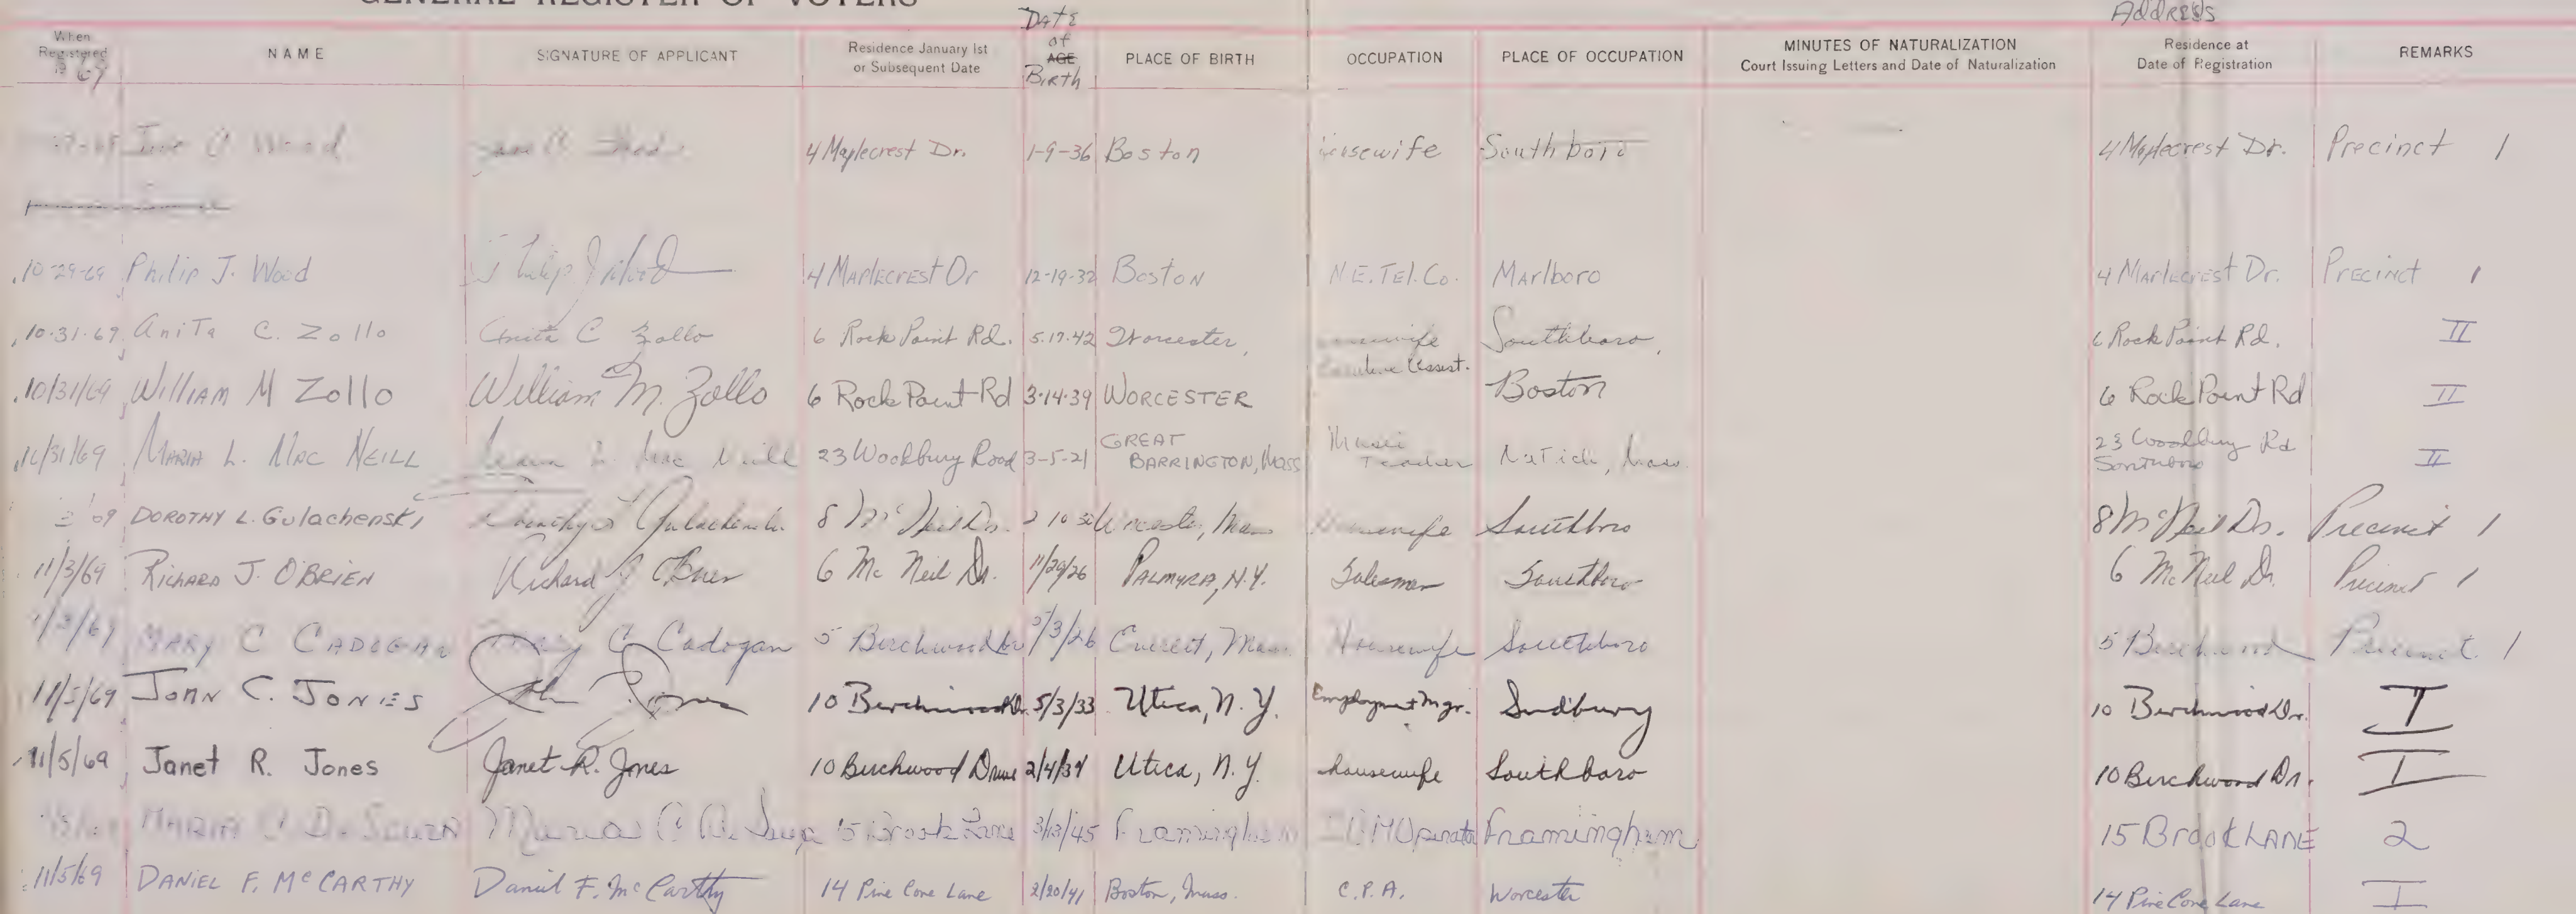 GENERAL REGISTER OF VOTERS
When Registered 19 69
NAME
SIGNATURE OF APPLICANT
Residence January 1st or Subsequent Date
Date of AGE Birth
PLACE OF BIRTH
OCCUPATION
PLACE OF OCCUPATION
MINUTES OF NATURALIZATION
Court Issuing Letters and Date of Naturalization
Address
Residence at Date of Registration
REMARKS
C Wood 4 Maplecrest Dr. 1-9-36 Boston Housewife Southboro 4 Maplecrest Dr. Precinct 1
10-29-69 Philip J. Wood Philip J Wood 4 Maplecrest Dr 12-19-32 Boston N.E. Tel. Co. Marlboro 4 Maplecrest Dr. Precinct 1
10-31-69 Anita C. Zollo Anita C Zollo 6 Rock Point Rd. 5-17-42 Worcester, Southboro, 6 Rock Point Rd. II
10/31/69 William M Zollo William M. Zollo 6 Rock Point Rd 3-14-39 WORCESTER Assist. Boston 6 Rock Point Rd II
10/31/69 Maria L. Mac Neill Mac Neill 23 Woodbury Road 3-5-21 GREAT BARRINGTON, MASS Music Teacher Natick, Mass. 23 Woodbury Rd Southboro II
69 DOROTHY L. Gulachenski Dorothy L Gulachenski 8 McNeil Dr. 2 10 Worcester, Mass Housewife Southboro 8 McNeil Dr. Precinct 1
11/3/69 RICHARD J. O'BRIEN Richard J O'Brien 6 Mc Neil Dr. 11/29/26 PALMYRA, N.Y. Salesman Southboro 6 McNeil Dr. Precinct 1
11/3/69 MARY C CADOGAN Mary C Cadogan 5 Birchwood Dr /3/26 Everett, Mass. Housewife Southboro 5 Birchwood Precinct 1
11/5/69 JOHN C. JONES John C Jones 10 Birchwood Dr. 5/3/33 Utica, N.Y. Employment Mgr. Sudbury 10 Birchwood Dr. I
11/5/69 Janet R. Jones Janet R. Jones 10 Birchwood Drive 2/4/34 Utica, N.Y. housewife Southboro 10 Birchwood Dr. I
MARIA C DeSouza Maria C DeSouza 15 Brook Lane 3/13/45 Framingham Operator Framingham 15 Brook LANE 2
11/5/69 DANIEL F. McCARTHY Daniel F. McCarthy 14 Pine Cone Lane 2/20/41 Boston, Mass. C.P.A. Worcester 14 Pine Cone Lane I